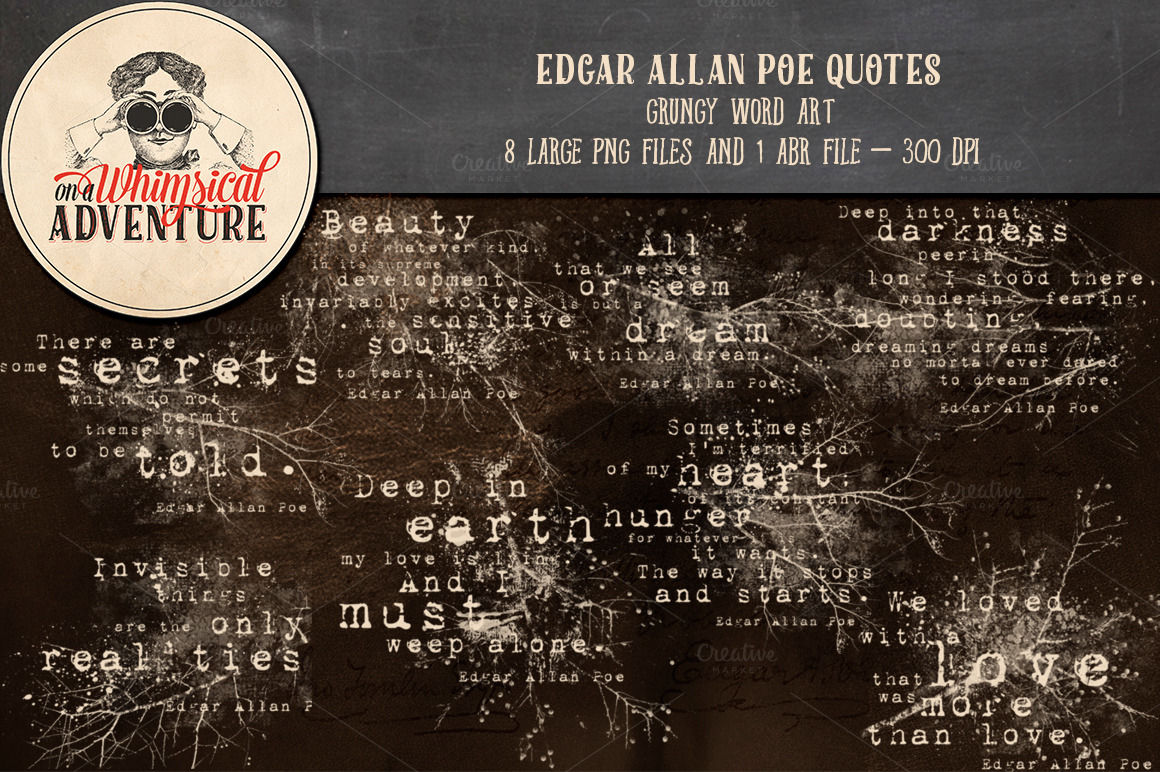 on a Whimsical
ADVENTURE
EDGAR ALLAN POE QUOTES
GRUNGY WORD ART
8 LARGE PNG FILES AND 1 ABR FILE – 300 DPI
Beauty
of whatever kind,
in its supreme
development
invariably excites
the sensitive
soul
to tears.
Edgar Allan Poe
All
that we see
or seem
is but a
dream
within a dream.
Edgar Allan Poe
Deep into that
darkness
peerin
long I stood there,
wondering fearing,
doubtin
dreaming dreams
no mortal ever dared
to dream before.
Edgar Allan Poe
There are
some secrets
which do not
permit
themselves
to be told.
Edgar Allan Poe
Deep in
earth
my love is lying
And I
must
weep alone.
Edgar Allan Poe
Sometimes
I'm terrified
of my heart
of its constant
hunger
for whatever it is
it wants.
The way it stops
and starts.
Edgar Allan Poe
Invisible
things
are the only
realities
Edgar Allan P
We loved
with a
love
that
was more
than love.
Edgar Allan Poe
Creative
MARKET